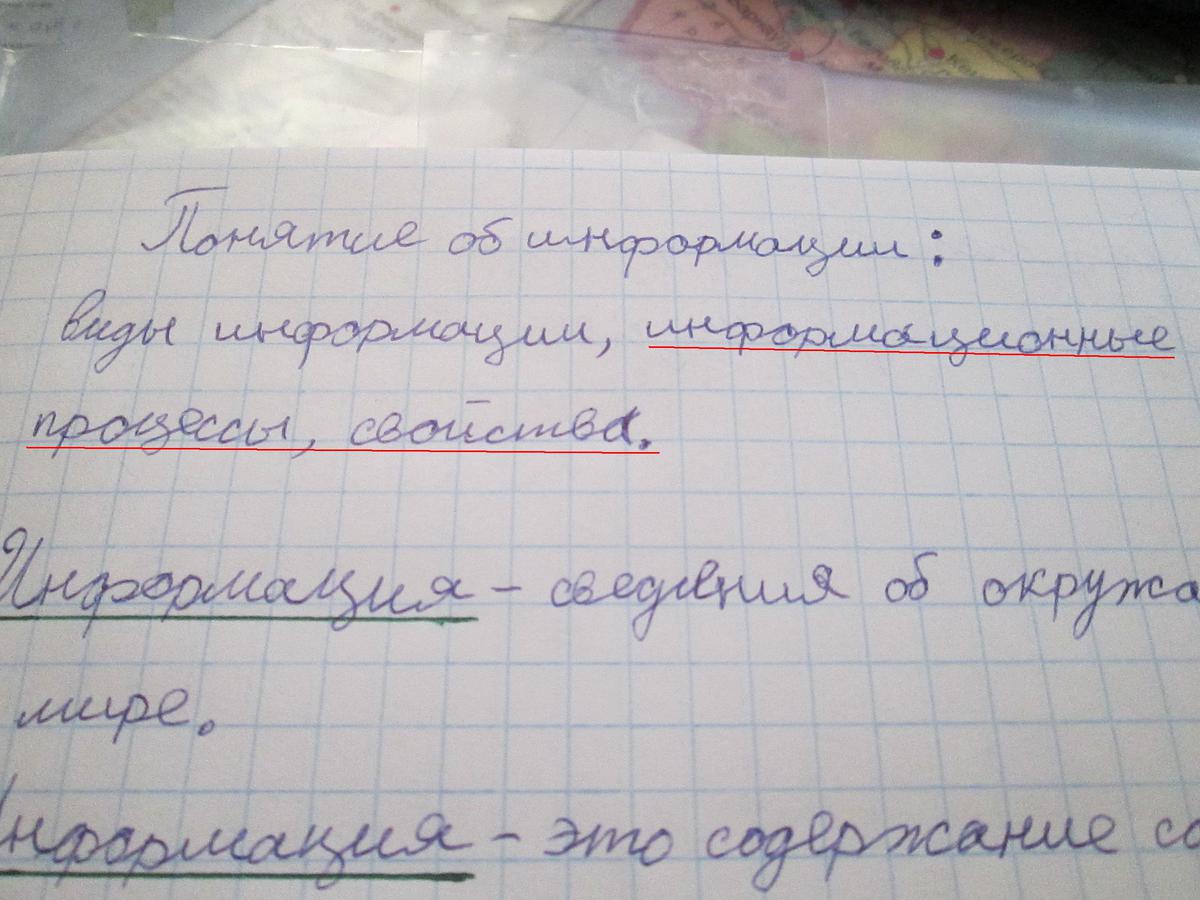 Понятие об информации:
виды информации, информационные
процессы, свойства.
Информация - сведения об окружа
мире.
Информация - это содержание со